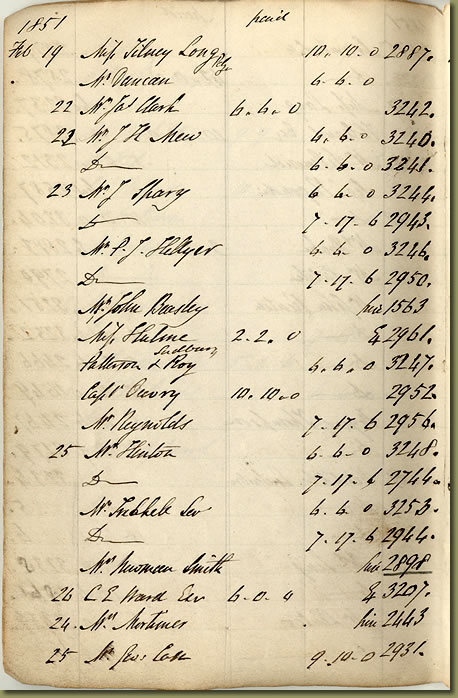 1851 paid
Feb 19 Miss Tilney Long 10. 10. 0 2887.
Mr Duncan 6. 6. 0
22 Mr Jas Clark 6. 6. 0 3242.
22 Mr J H Mew 6. 6. 0 3240.
Do 6. 6. 0 3241.
23 Mr J Spary 6 6. 0 3244.
Do 7. 17. 6 2943.
Mr P. J. Hellyer 6 6. 0 3246.
Do 7. 17. 6 2950.
Mr John Beasley hire 1563
Miss Hulme 2. 2. 0 Ex 2961.
Sudbury
Patterson & Roy 6. 6. 0 3247.
Captn 10. 10. 0 2952.
Mr Reynolds 7. 17. 6 2956.
25 Mr Hinton 6. 6. 0 3248.
Do 7. 17. 6 2744.
Mr Senr 6. 6. 0 3253.
Do 7. 17. 6 2944.
Mrs Newman Smith hire 2898
26 C E Ward Esr 6. 0. 0 Ex 3207.
24. Mrs Mortimer hire 2443
25 Mr Geo: 9. 10. 0 2931.